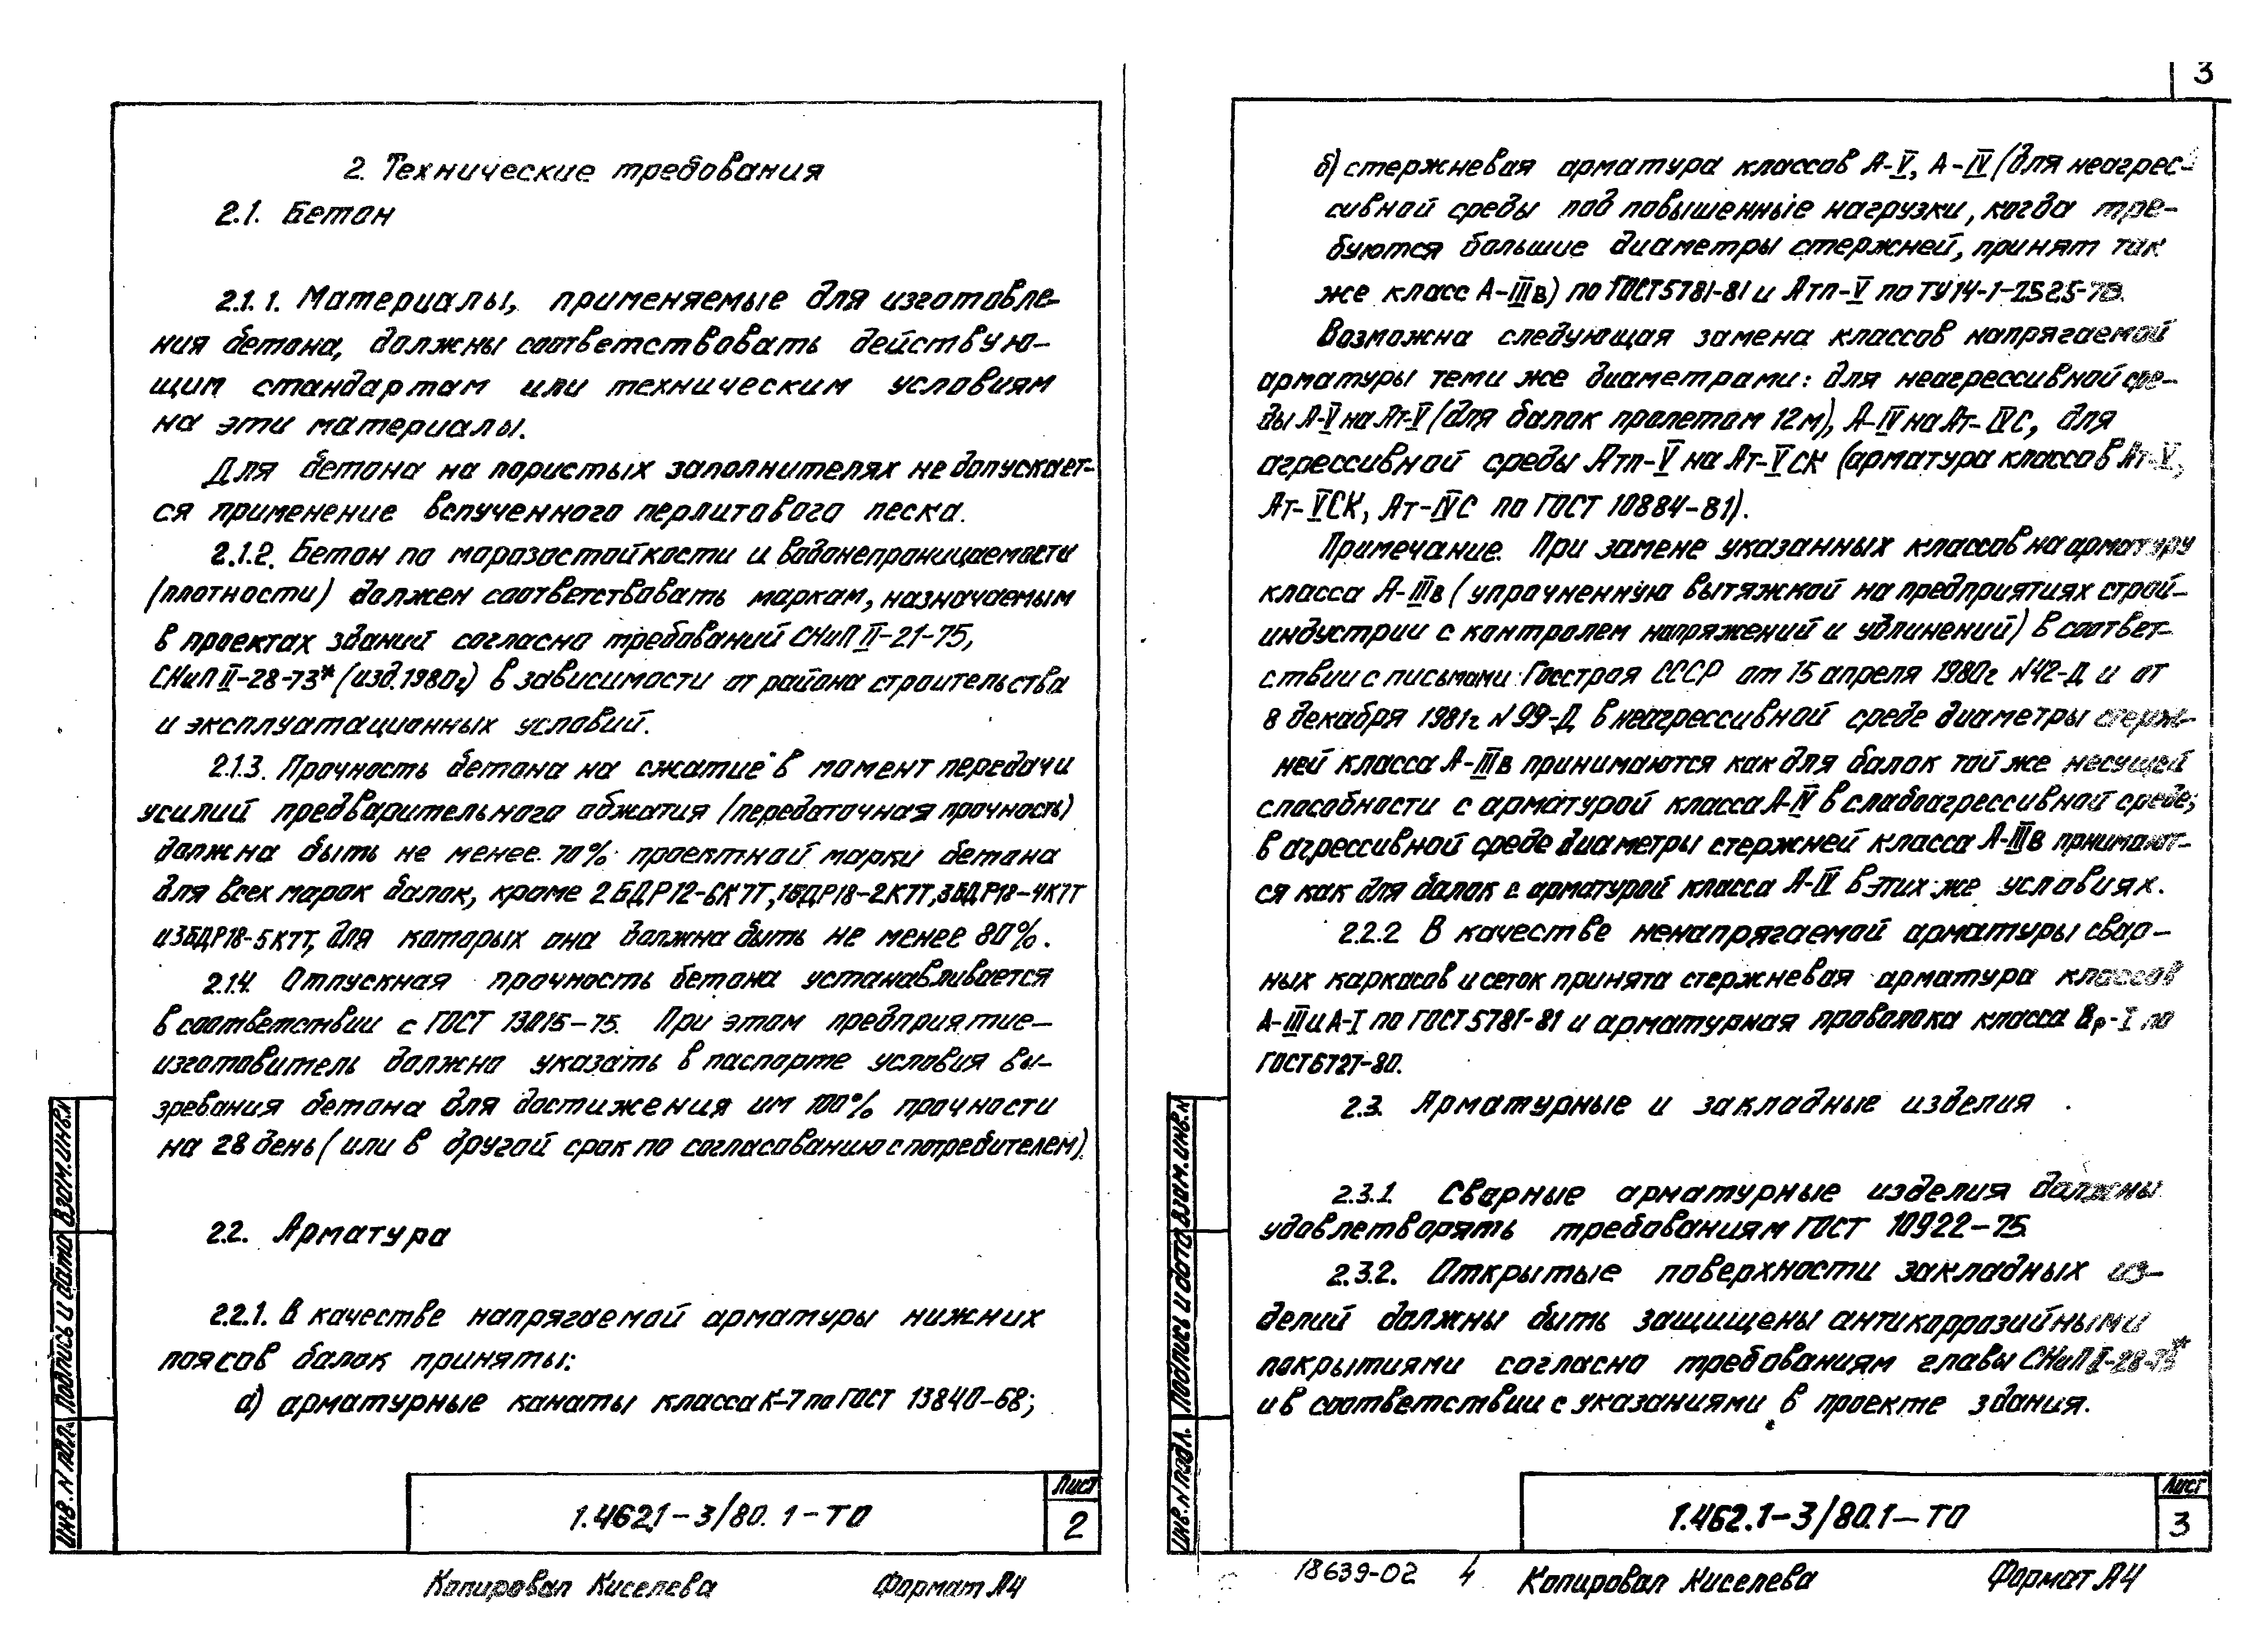 2. Технические требования
2.1. Бетон
2.1.1. Материалы, применяемые для изготовле-
ния бетона, должны соответствовать действую-
щим стандартам или техническим условиям
на эти материалы.
Для бетона на пористых заполнителях не допускает-
ся применение вспученного перлитового песка.
2.1.2. Бетон по морозостойкости и водонепроницаемости
(плотности) должен соответствовать маркам, назначаемым
в проектах зданий согласно требований СНиП II-21-75,
СНиП II-28-73* (изд. 1980г.) в зависимости от района строительства
и эксплуатационных условий.
2.1.3. Прочность бетона на сжатие в момент передачи
усилий предварительного обжатия (передаточная прочность)
должна быть не менее 70% проектной марки бетона
для всех марок балок, кроме 2БДР12-6К7Т, 1БДР18-2К7Т, 3БДР18-4К7Т
и 3БДР18-5К7Т, для которых она должна быть не менее 80%.
2.1.4. Отпускная прочность бетона устанавливается
в соответствии с ГОСТ 13015-75. При этом предприятие-
изготовитель должно указать в паспорте условия вы-
зревания бетона для достижения им 100% прочности
на 28 день (или в другой срок по согласованию с потребителем).
2.2. Арматура
2.2.1. В качестве напрягаемой арматуры нижних
поясов балок приняты:
а) арматурные канаты класса К-7 по ГОСТ 13840-68;
1.462.1-3/80.1-ТО
Лист
2
Копировал Киселева Формат А4
Инв. N подл. Подпись и дата Взам. инв. N
3
б) стержневая арматура классов А-V, А-IV (для неагрес-
сивной среды под повышенные нагрузки, когда тре-
буются большие диаметры стержней, принят так
же класс А-IIIв) по ГОСТ 5781-81 и Атп-V по ТУ 14-1-2525-78.
Возможна следующая замена классов напрягаемой
арматуры теми же диаметрами: для неагрессивной сре-
ды А-V на Ат-V (для балок пролетом 12м), А-IV на Ат-IVС, для
агрессивной среды Атп-V на Ат-VСК (арматура классов Ат-V,
Ат-VСК, Ат-IVС по ГОСТ 10884-81).
Примечание. При замене указанных классов на арматуру
класса А-IIIв (упрочненную вытяжкой на предприятиях строй-
индустрии с контролем напряжений и удлинений) в соответ-
ствии с письмами Госстроя СССР от 15 апреля 1980г N42-Д и от
8 декабря 1981г N99-Д в неагрессивной среде диаметры стерж-
ней класса А-IIIв принимаются как для балок той же несущей
способности с арматурой класса А-IV в слабоагрессивной среде;
в агрессивной среде диаметры стержней класса А-IIIв принимают-
ся как для балок с арматурой класса А-IV в этих же условиях.
2.2.2 В качестве ненапрягаемой арматуры свар-
ных каркасов и сеток принята стержневая арматура классов
А-III и А-I по ГОСТ 5781-81 и арматурная проволока класса Вр-I по
ГОСТ 6727-80.
2.3. Арматурные и закладные изделия
2.3.1. Сварные арматурные изделия должны
удовлетворять требованиям ГОСТ 10922-75.
2.3.2. Открытые поверхности закладных из-
делий должны быть защищены антикоррозийными
покрытиями согласно требованиям главы СНиП II-28-73*
и в соответствии с указаниями в проекте здания.
1.462.1-3/80.1-ТО
Лист
3
18639-02 4 Копировал Киселева Формат А4
Инв. N подл. Подпись и дата Взам. инв. N